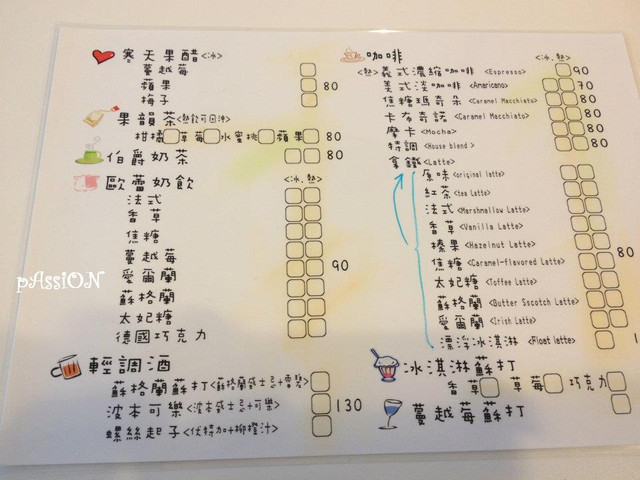 寒天果醋<冰>
蔓越莓
蘋果 80
梅子
果韻茶<熱飲可回沖>
柑橘 草莓 水蜜桃 蘋果 80
伯爵奶茶 80
歐蕾奶飲 <冰.熱>
法式
香草
焦糖
蔓越莓
愛爾蘭 90
蘇格蘭
太妃糖
德國巧克力
輕調酒
蘇格蘭蘇打<蘇格蘭威士忌+雪碧>
波本可樂<波本威士忌+可樂> 130
螺絲起子<伏特加+柳橙汁>
咖啡 <冰.熱>
<熱>義式濃縮咖啡<Espresso> 90
美式淡咖啡<Americano> 70
焦糖瑪奇朵<Caramel Macchiato> 80
卡布奇諾<Caramel Macchiato> 80
摩卡<Mocha> 80
特調<House blend> 80
拿鐵<Latte>
原味<original latte>
紅茶<tea Latte>
法式<Marshmallow Latte>
香草<Vanilla Latte>
榛果<Hazelnut Latte>
焦糖<Caramel-flavored Latte> 80
太妃糖<Toffee Latte>
蘇格蘭<Butter Sscotch Latte>
愛爾蘭<Irish Latte>
漂浮冰淇淋<Float latte> 1
冰淇淋蘇打
香草 草莓 巧克力
蔓越莓蘇打
pAssiON